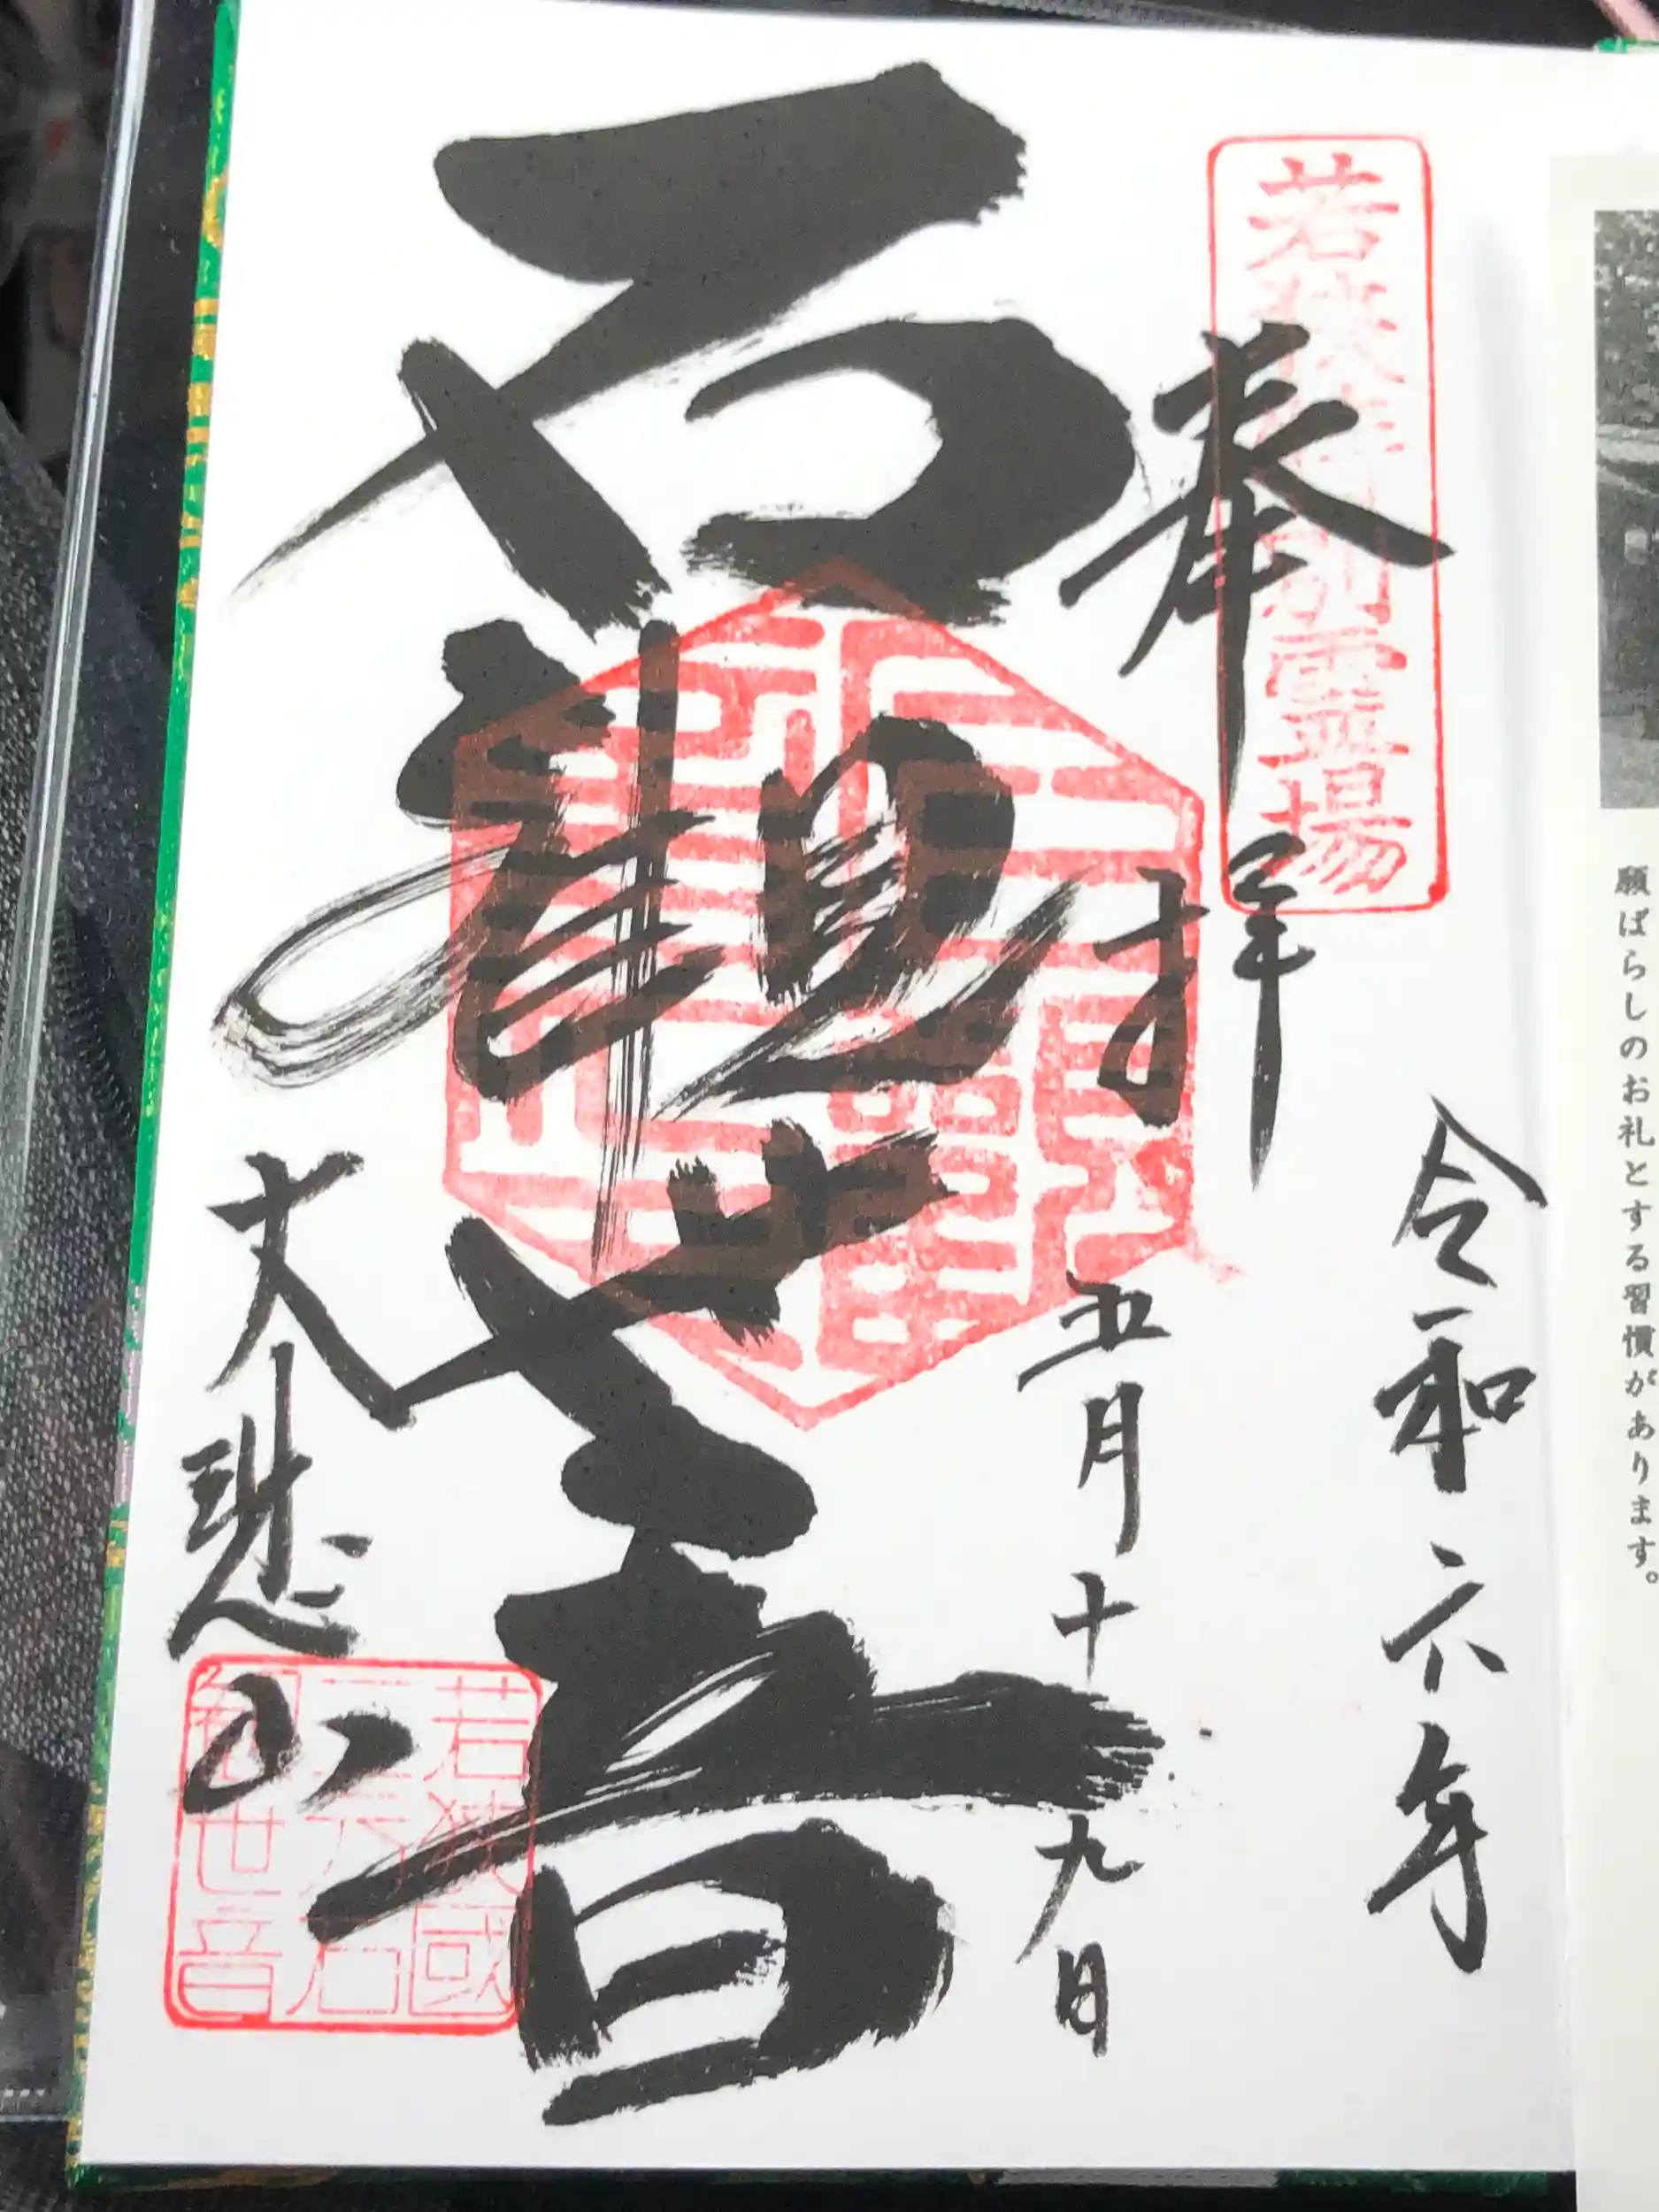 願ばらしのお礼とする習慣があります。
若狭特別霊場
奉拝
令和六年
五月十九日
石観世音
大悲山
若狭國
三方石
観世音